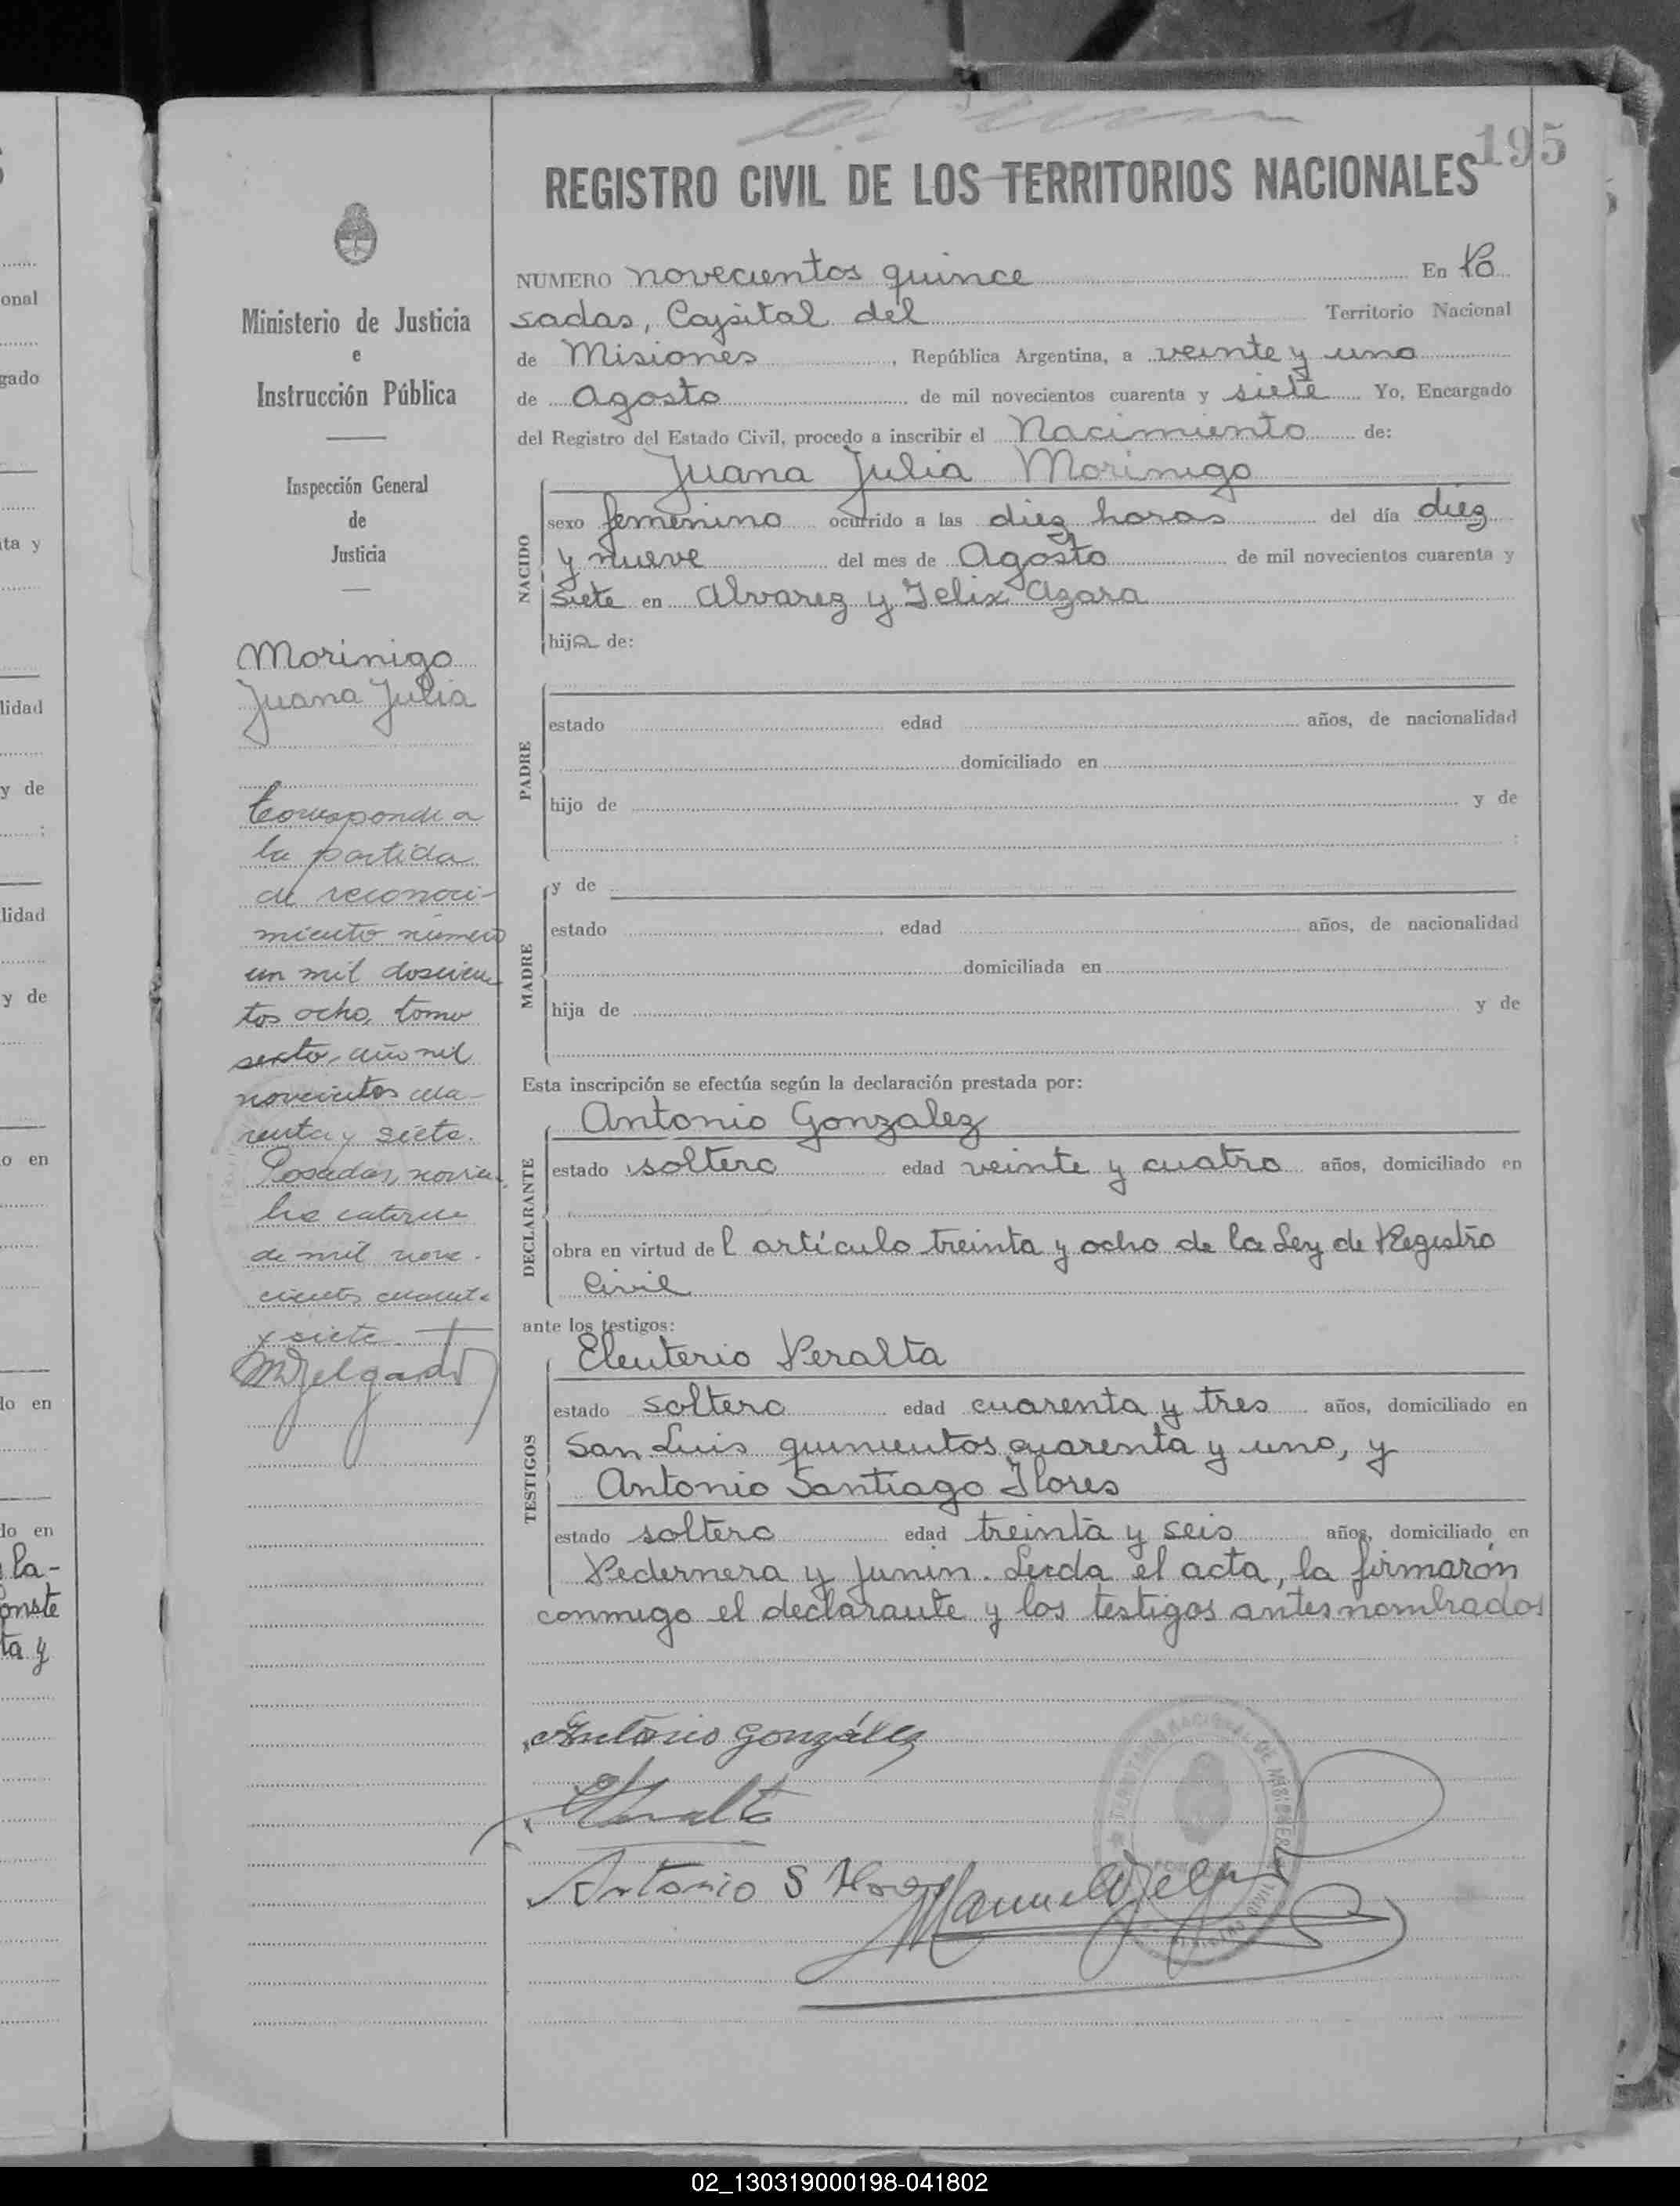 195
REGISTRO CIVIL DE LOS TERRITORIOS NACIONALES
Ministerio de Justicia
e
Instrucción Pública
Inspección General
de
Justicia
Morinigo
Juana Julia
Corresponde a
la partida
de reconoci-
miento número
un mil doscien
tos ocho, tomo
sexto, año mil
novecientos cua-
renta y siete.
Posadas, noviem
bre catorce
de mil nove-
cientos cuarenta
y siete.
MDelgado
NUMERO novecientos quince En Po
sadas, Capital del Territorio Nacional
de Misiones, República Argentina, a veinte y uno
de Agosto de mil novecientos cuarenta y siete Yo, Encargado
del Registro del Estado Civil, procedo a inscribir el Nacimiento de:
NACIDO
Juana Julia Morinigo
sexo femenino ocurrido a las diez horas del día diez
y nueve del mes de Agosto de mil novecientos cuarenta y
siete en Alvarez y Felix Azara
hija de:
PADRE
estado edad años, de nacionalidad
domiciliado en
hijo de y de
;
MADRE
y de
estado , edad años, de nacionalidad
domiciliada en
hija de y de
Esta inscripción se efectúa según la declaración prestada por:
DECLARANTE
Antonio Gonzalez
estado soltero edad veinte y cuatro años, domiciliado en
obra en virtud del artículo treinta y ocho de la Ley de Registro
Civil
ante los testigos:
TESTIGOS
Eleuterio Peralta
estado soltero edad cuarenta y tres años, domiciliado en
San Luis quinientos cuarenta y uno, y
Antonio Santiago Flores
estado soltero edad treinta y seis años, domiciliado en
Pedernera y Junin. Leida el acta, la firmarón
conmigo el declarante y los testigos antes nombrados
Antonio González
EPeralta
Antonio S Flores
Manuel Delgado
onal
gado
ta y
lidad
y de
:
lidad
y de
o en
do en
do en
la-
onste
ta y
02_130319000198-041802